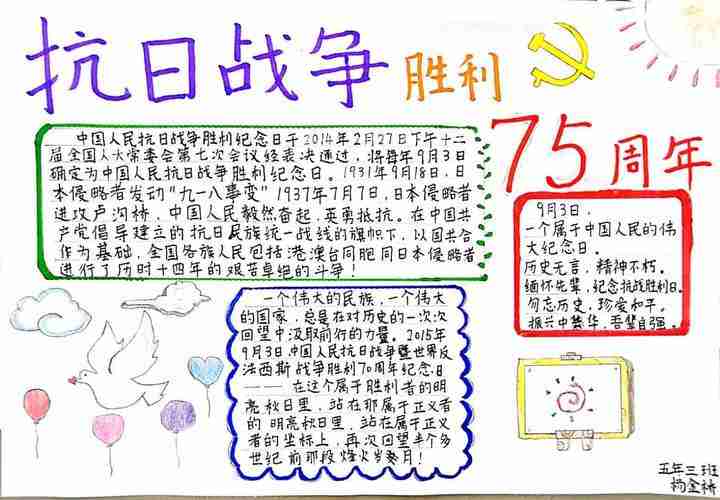 抗日战争胜利
75周年
中国人民抗日战争胜利纪念日于2014年2月27日下午十二
届全国人大常委会第七次会议经表决通过,将每年9月3日
确定为中国人民抗日战争胜利纪念日。1931年9月18日,日
本侵略者发动“九一八事变”1937年7月7日,日本侵略者
进攻卢沟桥,中国人民毅然奋起,英勇抵抗。在中国共
产党倡导建立的抗日民族统一战线的旗帜下,以国共合
作为基础,全国各族人民包括港澳台同胞同日本侵略者
进行了历时十四年的艰苦卓绝的斗争!
9月3日,
一个属于中国人民的伟
大纪念日。
历史无言,精神不朽。
缅怀先辈,纪念抗战胜利日。
勿忘历史,珍爱和平。
振兴中华,吾辈自强。
一个伟大的民族,一个伟大
的国家,总是在对历史的一次次
回望中汲取前行的力量。2015年
9月3日,中国人民抗日战争暨世界反
法西斯战争胜利70周年纪念日
——在这个属于胜利者的明
亮秋日里,站在那属于正义者
的明亮秋日里,站在属于正义
者的坐标上,再次回望半个多
世纪前那段烽火岁月!
五年三班
杨金